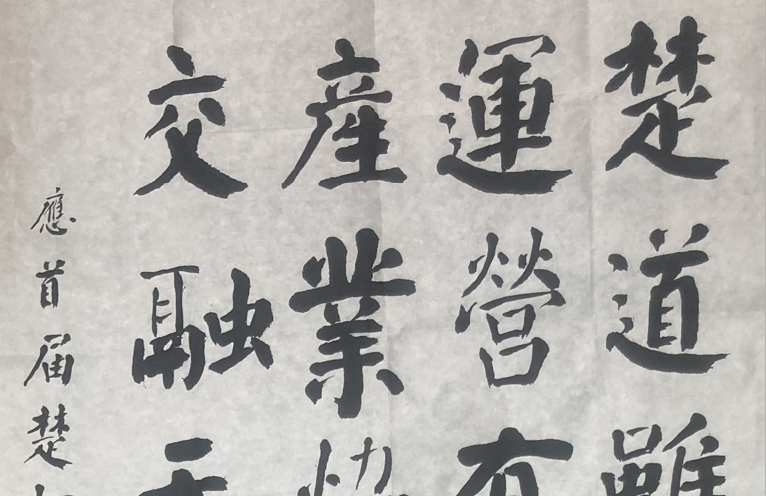 楚道雖
運營有
產業
交融
應首届楚